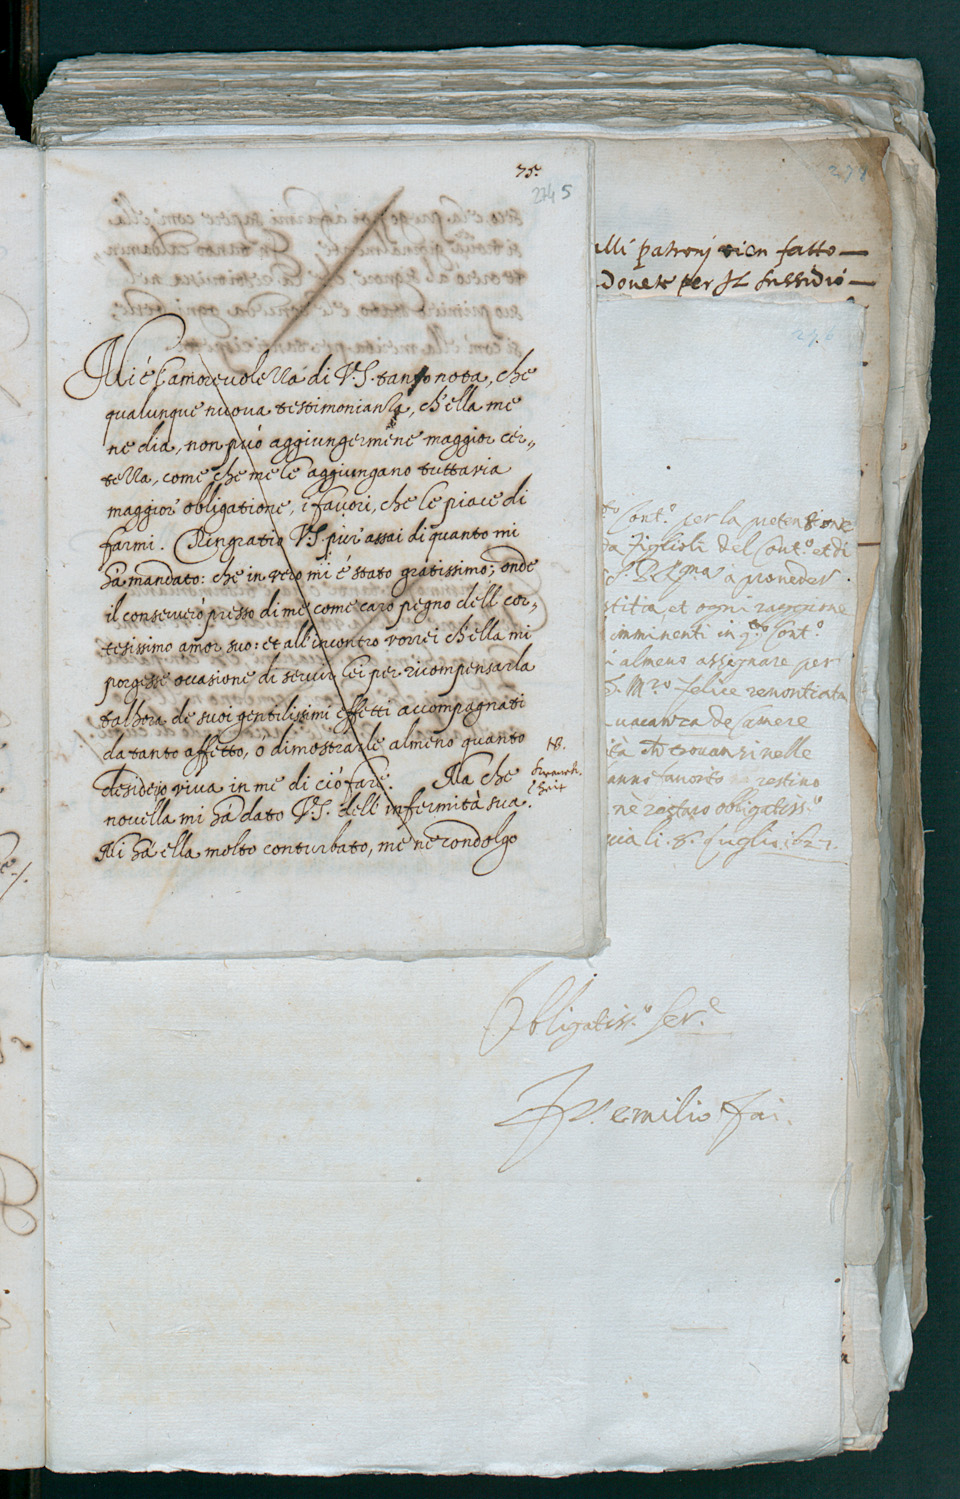 75.
274 5
278
alli patronj vien fatto
Dovete per Il sussidio
276
Mi é l'amorevolezza di V.S. tanto nota, che
qualunque nuova testimonianza, ch'ella me
ne dia, non può aggiungermene maggior cer,,
tezza, come che me le aggiungano tuttavia
maggior obligatione, i favori, che le piace di
farmi. Ringratio V.S. pur assai di quanto mi
há mandato: che in vero mi é stato gratissimo; onde
il conserverò presso di me come caro pegno dell cor,,
tesissimo amor suo: et all'incontro vorrei ch'ella mi
porgesse occasione di servir lei per ricompensarla
talhora de suoi gentilissimi effetti accompagnati
da tanto affetto, ó dimostrarle almeno quanto
desiderio viva in me di ció fare. Ma che
novella mi há dato V.S. dell'infermitá sua.
Mi há ella molto conturbato, me ne condolgo
NB.
Cont.º per la pretensione
figlioli del Cont.º et di
à proveder
stitia, et ogni ragione
imminenti in Cont.º
almeno assegnare per
felice renontiata
vacanza de Camere
trovansi nelle
restino
nè restarò obligatiss.º
li .8. luglio .1621.
Obligatiss.º ser.e
emilio